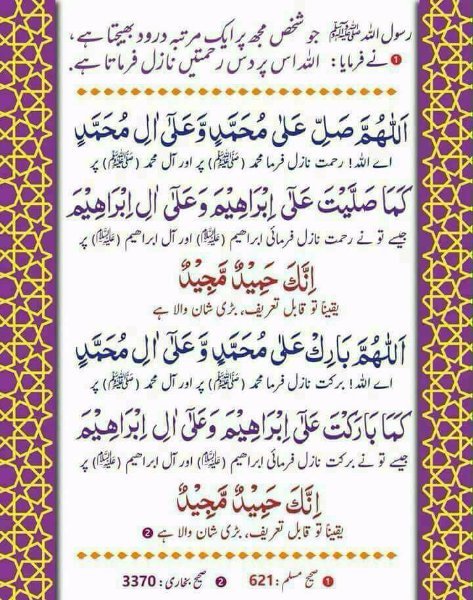 رسول اللہ ﷺ جو شخص مجھ پر ایک مرتبہ درود بھیجتا ہے،
❶ نے فرمایا: اللہ اس پر دس رحمتیں نازل فرماتا ہے.
اَللّٰهُمَّ صَلِّ عَلٰی مُحَمَّدٍ وَّعَلٰٓی اٰلِ مُحَمَّدٍ
اے اللہ! رحمت نازل فرما محمد (ﷺ) پر اور آل محمد (ﷺ) پر
كَمَا صَلَّيْتَ عَلٰٓی اِبْرَاهِيْمَ وَعَلٰٓی اٰلِ اِبْرَاهِيْمَ
جیسے تو نے رحمت نازل فرمائی ابراھیم (علیہ السلام) پر اور آل ابراھیم (علیہ السلام) پر
اِنَّكَ حَمِيْدٌ مَّجِيْدٌ
یقیناً تو قابل تعریف، بڑی شان والا ہے
اَللّٰهُمَّ بَارِكْ عَلٰی مُحَمَّدٍ وَّعَلٰٓی اٰلِ مُحَمَّدٍ
اے اللہ! برکت نازل فرما محمد (ﷺ) پر اور آل محمد (ﷺ) پر
كَمَا بَارَكْتَ عَلٰٓی اِبْرَاهِيْمَ وَعَلٰٓی اٰلِ اِبْرَاهِيْمَ
جیسے تو نے برکت نازل فرمائی ابراھیم (علیہ السلام) پر اور آل ابراھیم (علیہ السلام) پر
اِنَّكَ حَمِيْدٌ مَّجِيْدٌ
یقیناً تو قابل تعریف، بڑی شان والا ہے ❷
❶ صحیح مسلم: 621 ❷ صحیح بخاری: 3370